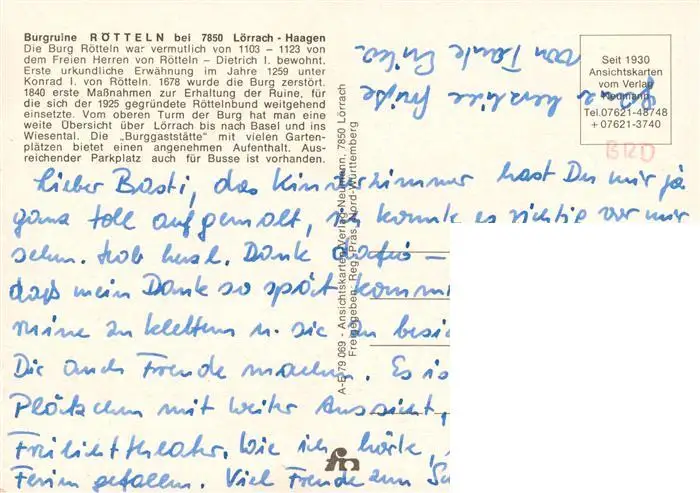 Burgruine RÖTTELN bei 7850 Lörrach - Haagen
Die Burg Rötteln war vermutlich von 1103 – 1123 von
dem Freien Herren von Rötteln – Dietrich I. bewohnt.
Erste urkundliche Erwähnung im Jahre 1259 unter
Konrad I. von Rötteln. 1678 wurde die Burg zerstört.
1840 erste Maßnahmen zur Erhaltung der Ruine, für
die sich der 1925 gegründete Röttelnbund weitgehend
einsetzte. Vom oberen Turm der Burg hat man eine
weite Übersicht über Lörrach bis nach Basel und ins
Wiesental. Die „Burggaststätte" mit vielen Garten-
plätzen bietet einen angenehmen Aufenthalt. Aus-
reichender Parkplatz auch für Busse ist vorhanden.
Seit 1930
Ansichtskarten
vom Verlag
Neumann
Tel.07621-48748
+ 07621-3740
BRD
herzliche Grüße
von Tante
Lieber Basti, das Kinderzimmer hast Du mir ja
ganz toll aufgemalt, ich konnte es richtig vor mir
sehn. Hab herzl. Dank dafür –
daß mein Dank so spät komm
ruine zu klettern u. sie zu besi
Dir auch Freude machen. Es is
Plätzchen mit weiter Aussicht,
Freilichttheater. Wie ich hörte,
Ferien gefallen. Viel Freude zum Sc
A-E 79 069 - Ansichtskarten-Verlag-Neumann, 7850 Lörrach
Freigegeben: Reg. Präs. Nord-Württemberg